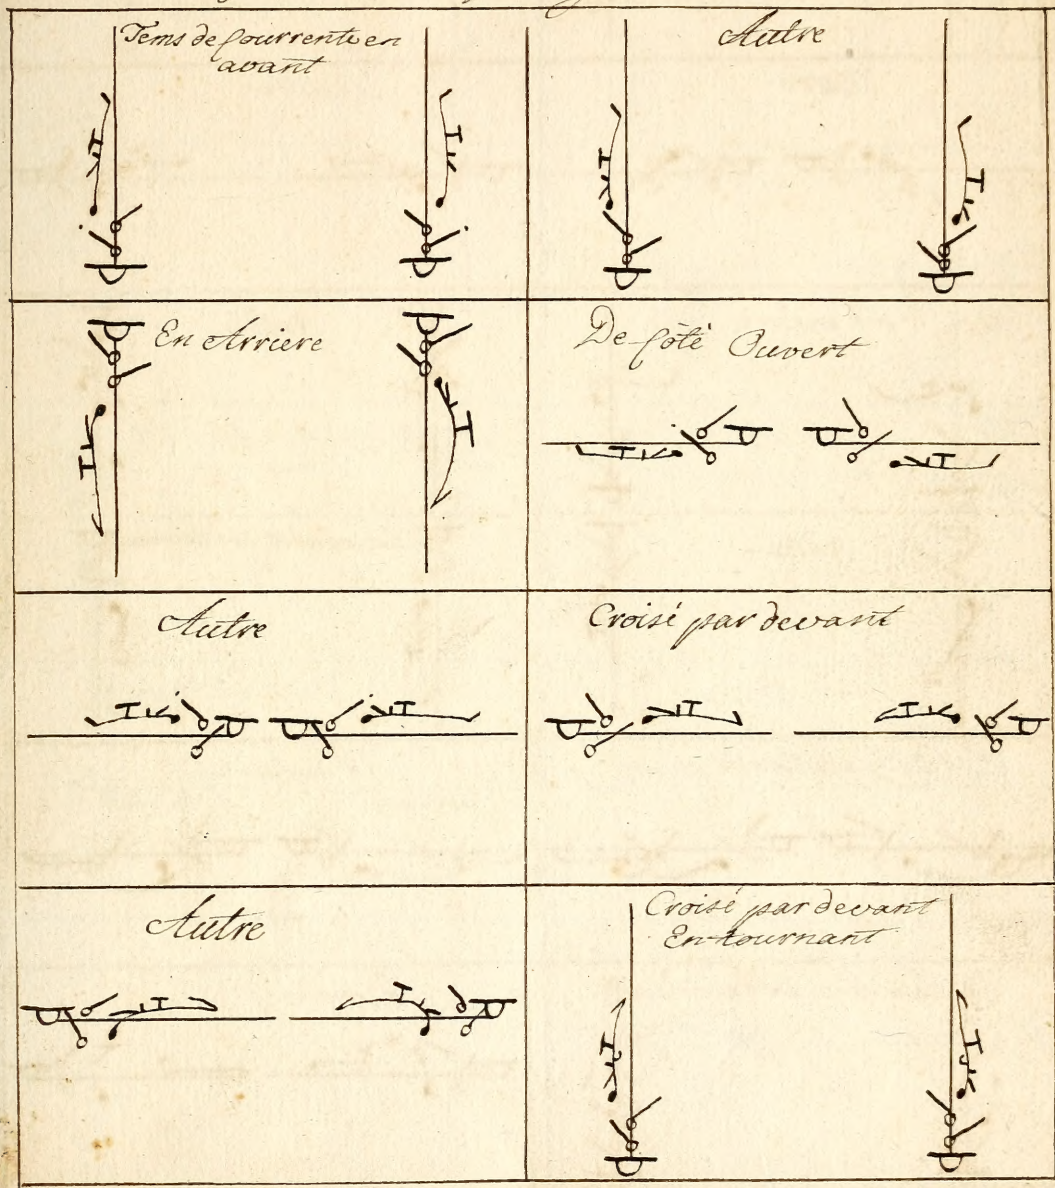 Tems de Courrente en
avant
Autre
En Arriere
De Côté Ouvert
Autre
Croisé par devant
Autre
Croisé par devant
En tournant